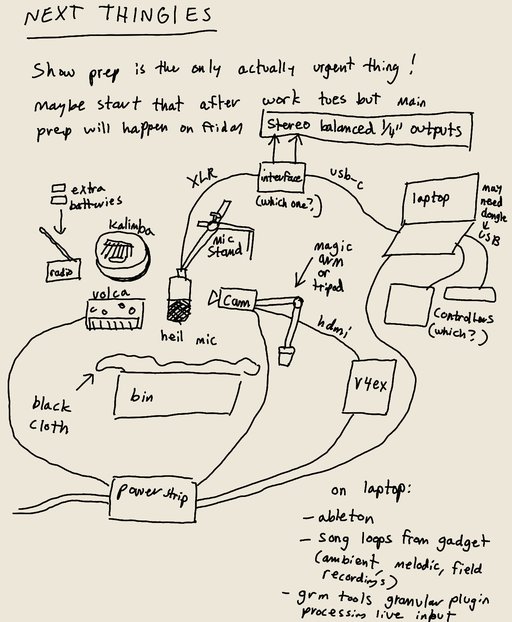 NEXT THINGIES
Show prep is the only actually urgent thing!
maybe start that after work tues but main
prep will happen on friday
Stereo balanced 1/4" outputs
XLR
interface
(which one?)
usb-c
laptop
may
need
dongle
USB
extra
batteries
kalimba
mic
stand
radio
magic
arm
or
tripod
volca
Cam
controllers
(which?)
heil mic
hdmi
V4ex
black
cloth
bin
power strip
on laptop:
- ableton
- song loops from gadget
(ambient, melodic, field
recordings)
- grm tools granular plugin
processing live input